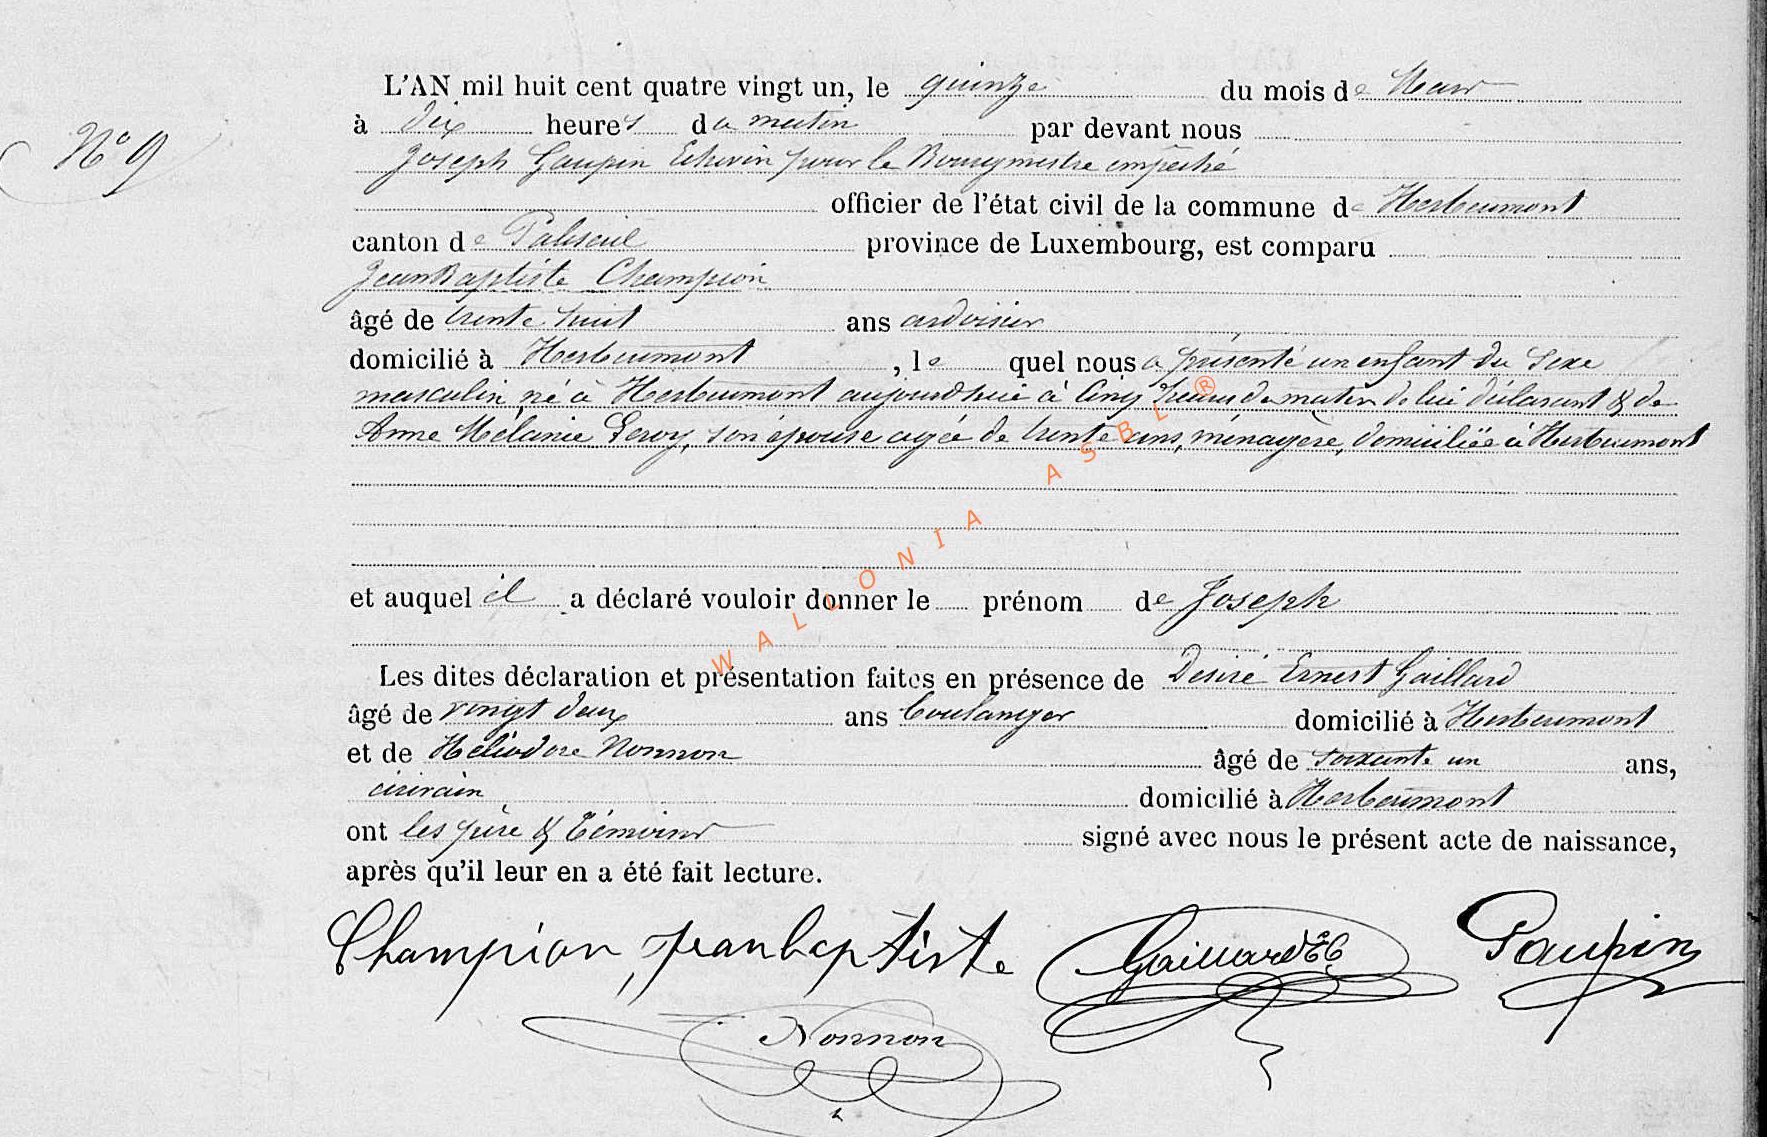 L'AN mil huit cent quatre vingt un, le quinze du mois de Mars
à dix heures du matin par devant nous
N° 9
Joseph Gaupin Echevin pour le Bourgmestre empêché
officier de l'état civil de la commune de Herbeumont
canton de Paliseul province de Luxembourg, est comparu
Jean Baptiste Champion
âgé de trente huit ans ardoisier
domicilié à Herbeumont, lequel nous a présenté un enfant du sexe
masculin né à Herbeumont aujourd'hui à cinq heures du matin de lui déclarant & de
Anne Mélanie Leroy, son épouse agée de trente ans, ménagère, domiciliée à Herbeumont
WALLONIA ASBL®
et auquel il a déclaré vouloir donner le prénom de Joseph
Les dites déclaration et présentation faites en présence de Desiré Ernest Gaillard
âgé de vingt deux ans boulanger domicilié à Herbeumont
et de Héliodore Nonnon âgé de soixante un ans,
domicilié à Herbeumont
ont les père & témoins signé avec nous le présent acte de naissance,
après qu'il leur en a été fait lecture.
Champion, jean baptiste Gaillard Gaupin
Nonnon